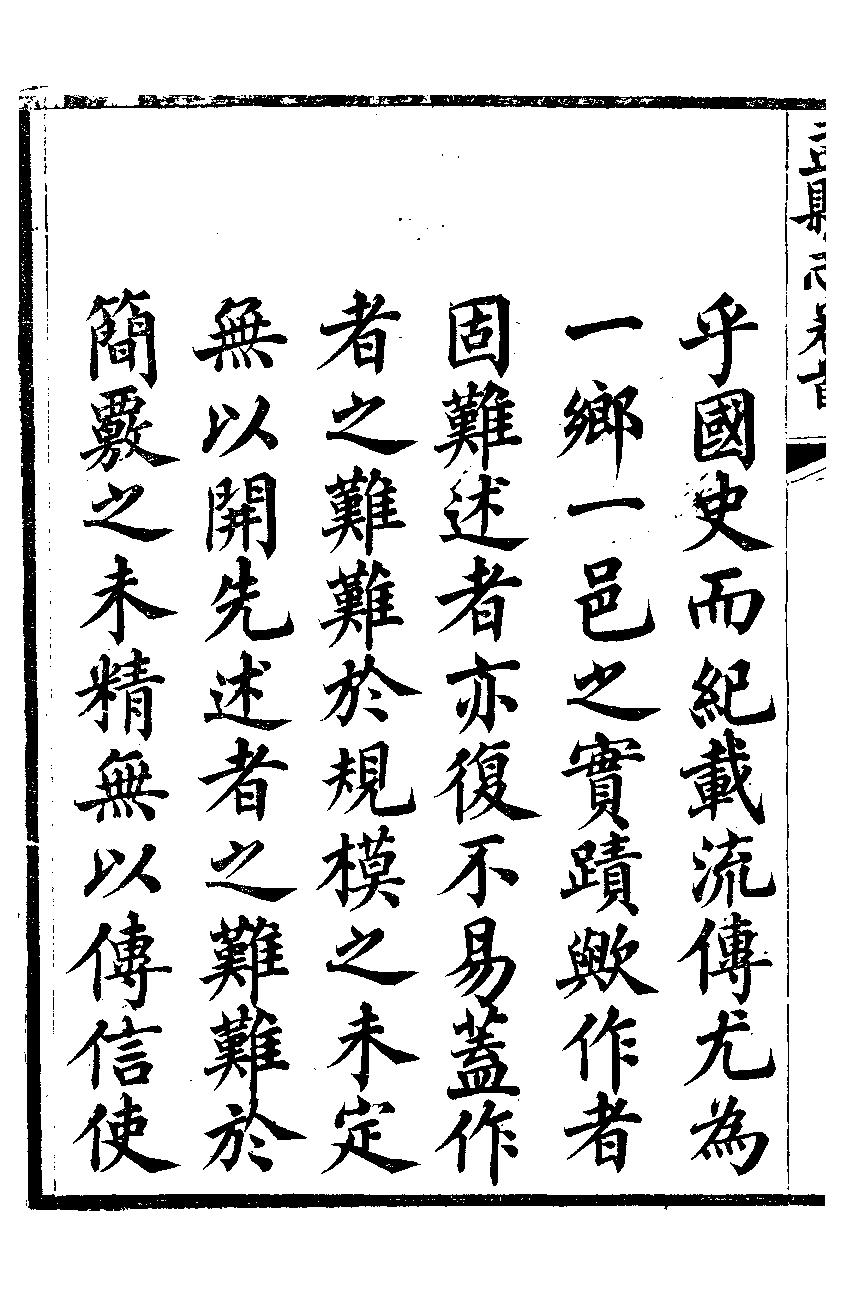 乎國史而紀載流傳尤為
一鄉一邑之實蹟歟作者
固難述者亦復不易蓋作
者之難難於規模之未定
無以開先述者之難難於
簡覈之未精無以傳信使